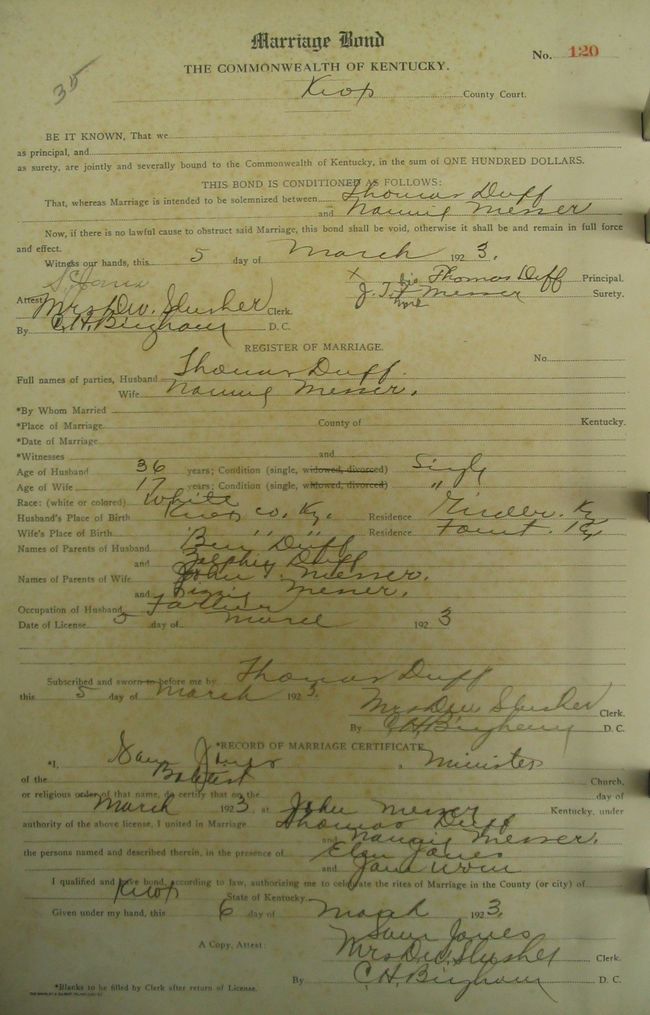 Marriage Bond
No. 120
35
THE COMMONWEALTH OF KENTUCKY.
Knox County Court.
BE IT KNOWN, That we
as principal, and
as surety, are jointly and severally bound to the Commonwealth of Kentucky, in the sum of ONE HUNDRED DOLLARS.
THIS BOND IS CONDITIONED AS FOLLOWS:
That, whereas Marriage is intended to be solemnized between Thomas Duff
and Nannie Messer
Now, if there is no lawful cause to obstruct said Marriage, this bond shall be void, otherwise it shall be and remain in full force
and effect.
Witness our hands, this 5 day of March 1923.
X his Thomas Duff Principal.
J. T. Messer Surety.
Attest Mrs Dw. Slusher Clerk.
By C. H. Bingham D. C.
REGISTER OF MARRIAGE.
No.
Full names of parties, Husband Thomas Duff.
Wife Nannie Messer.
*By Whom Married
*Place of Marriage County of Kentucky.
*Date of Marriage
*Witnesses and
Age of Husband 36 years; Condition (single, widowed, divorced) Single
Age of Wife 17 years; Condition (single, widowed, divorced) "
Race: (white or colored) White
Husband's Place of Birth Knox Co. Ky. Residence Ky
Wife's Place of Birth " " " Residence Fount. Ky
Names of Parents of Husband Ben Duff
and Duff
Names of Parents of Wife John Messer.
and Lizzie Messer.
Occupation of Husband Farmer
Date of License 5 day of March 1923
Subscribed and sworn to before me by Thomas Duff
this 5 day of March 1923.
Mrs Dw Slusher Clerk.
By C. H. Bingham D. C.
*RECORD OF MARRIAGE CERTIFICATE
*I, Sam Jones, Minister
of the Baptist Church,
or religious order of that name, do certify that on the day of
March 1923, at John Messer Kentucky, under
authority of the above license, I united in Marriage Thomas Duff
and Nannie Messer.
the persons named and described therein, in the presence of Jones
and
I qualified and gave bond, according to law, authorizing me to celebrate the rites of Marriage in the County (or city) of
Knox State of Kentucky.
Given under my hand, this 6 day of March 1923.
Sam Jones
A Copy, Attest: Mrs Dw. Slusher Clerk.
By C. H. Bingham D. C.
*Blanks to be filled by Clerk after return of License.